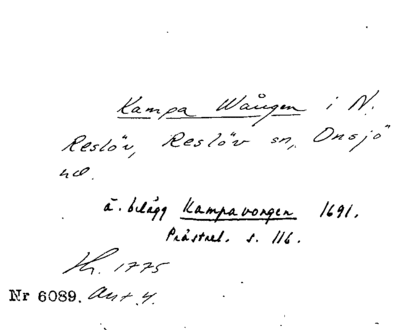 Kampa Wången i N.
Reslöv, Reslöv sn, Onsjö
hd.
ä. belägg Kampavongen 1691.
Prästrel. s. 116.
Kr. 1775
Nr 6089. Ant. 4.